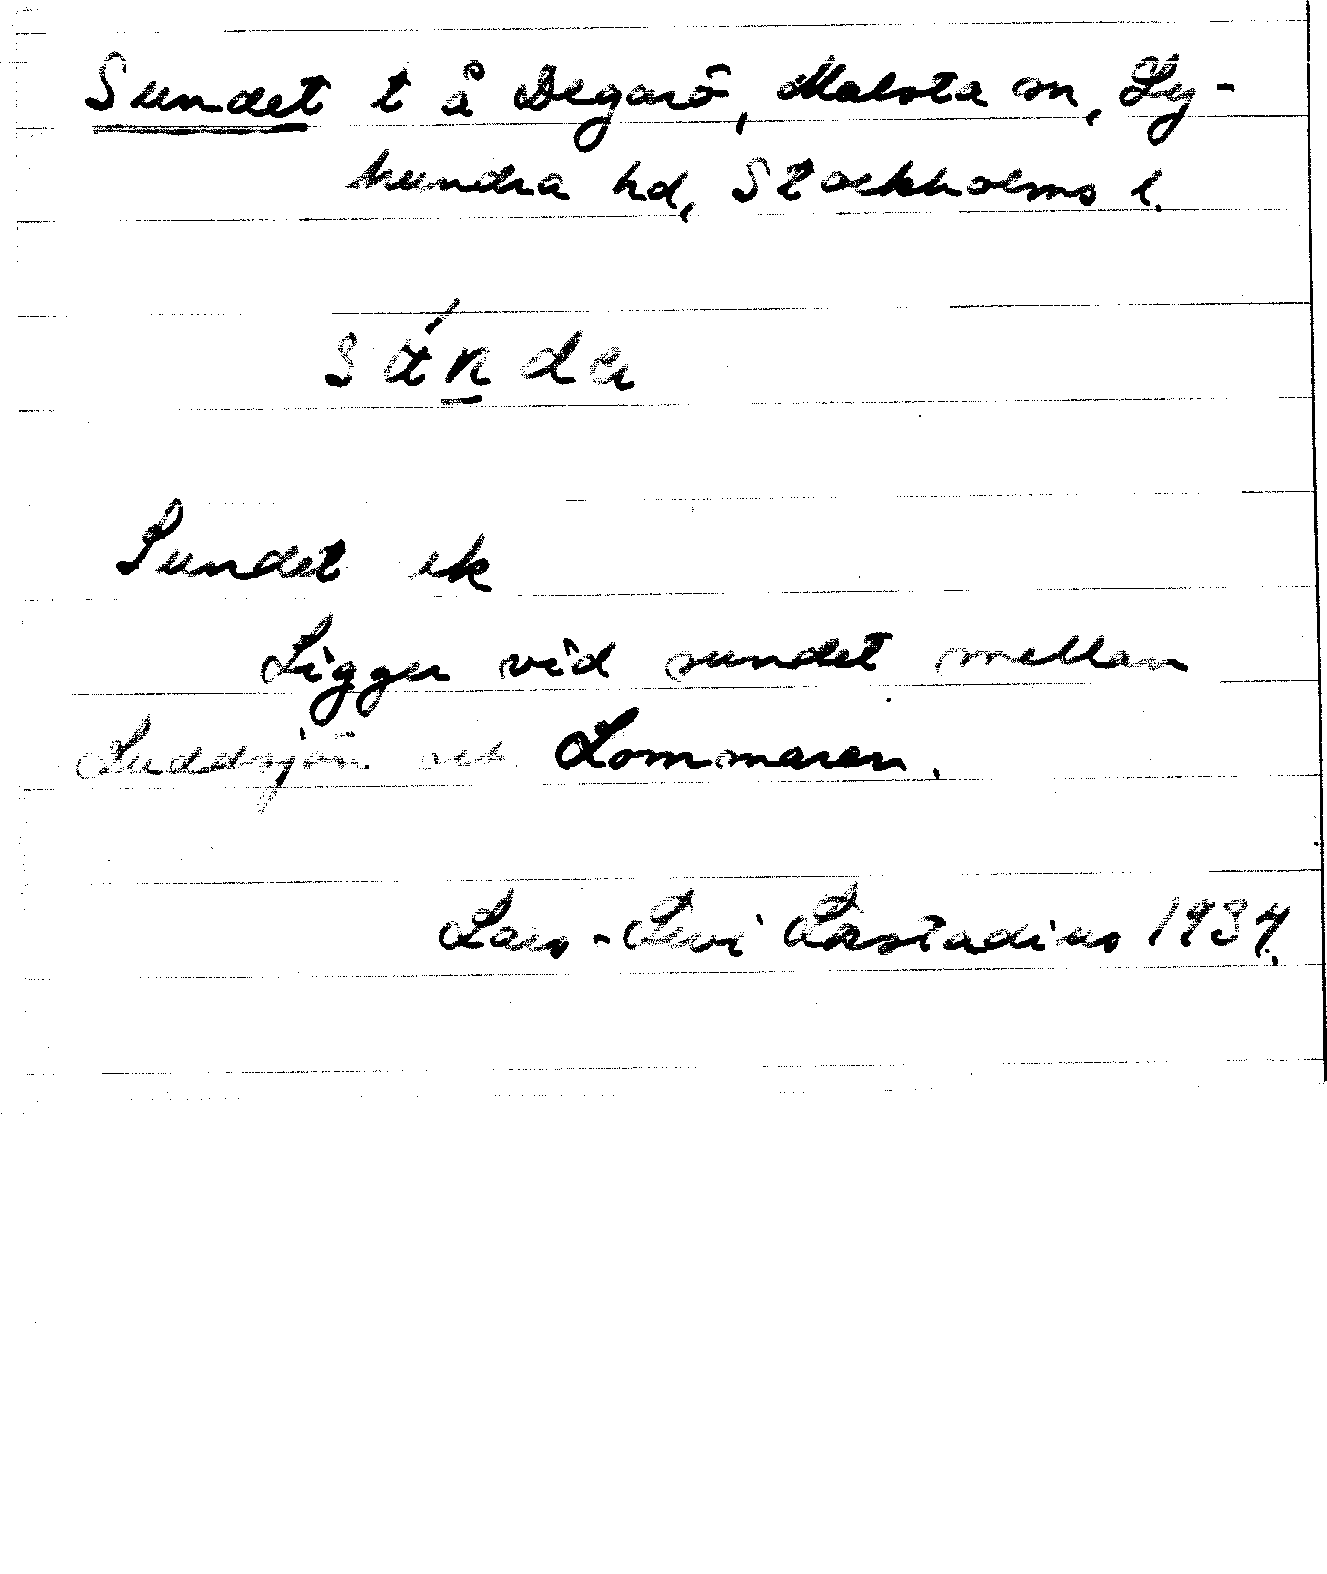 Sundet t å Degarö, Malsta sn, Ly-
hundra hd, Stockholms l.
Sundet ek
Ligger vid sundet mellan
Luddsjön och Lommaren.
Lars-Levi Læstadius 1934.